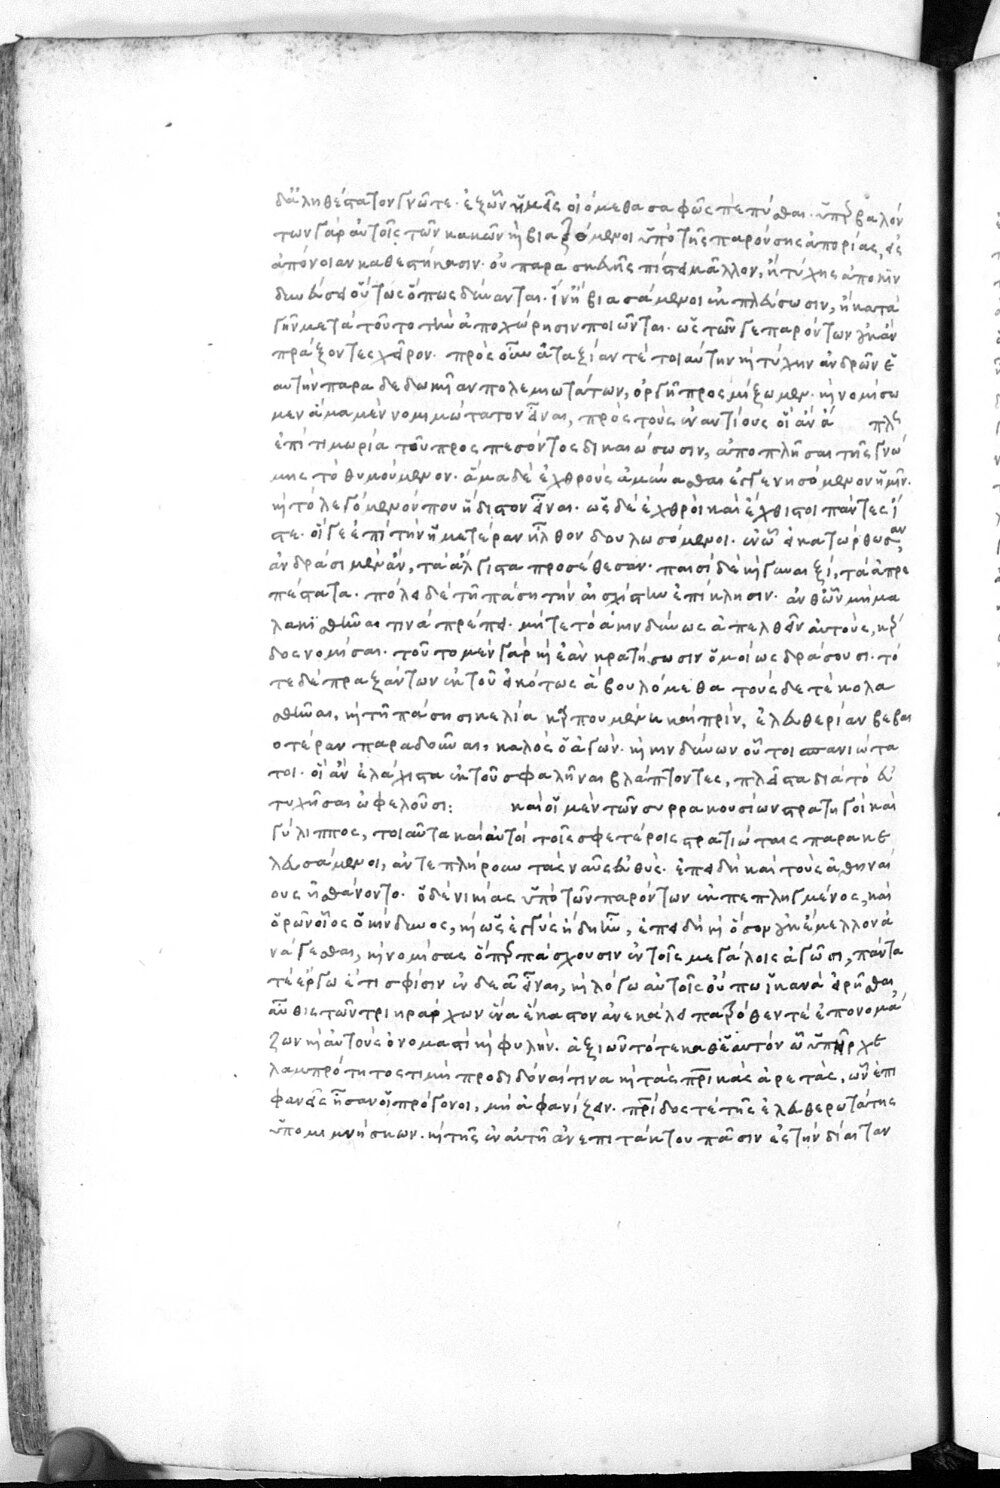 δ' ἀληθέστατον γνῶτε· ἐξ ὧν ἡμεῖς οἰόμεθα σαφῶς πεπύσθαι· ὑπερβαλόν
των γὰρ αὐτοῖς τῶν κακῶν καὶ βιαζόμενοι ὑπὸ τῆς παρούσης ἀπορίας, ἐς
ἀπόνοιαν καθεστήκασιν· οὐ παρασκευῆς πίστει μᾶλλον, ἢ τύχης ἀποκιν
δυνεῦσαι οὕτως ὅπως δύνανται· ἵν' ἢ βιασάμενοι ἐκπλεύσωσιν, ἢ κατὰ
γῆν μετὰ τοῦτο τὴν ἀποχώρησιν ποιῶνται· ὡς τῶν γε παρόντων οὐκ ἂν
πράξοντες χεῖρον· πρὸς οὖν ἀταξίαν τε τοιαύτην καὶ τύχην ἀνδρῶν ἑ
αυτὴν παραδεδωκυῖαν πολεμιωτάτων, ὀργῇ προσμίξωμεν· καὶ νομίσω
μεν ἅμα μὲν νομιμώτατον εἶναι, πρὸς τοὺς ἐναντίους οἳ ἂν ὡς
ἐπὶ τιμωρία τοῦ προσπεσόντος δικαιώσωσιν, ἀποπλῆσαι τῆς γνώ
μης τὸ θυμούμενον· ἅμα δὲ ἐχθροὺς ἀμύνασθαι ἐκγενησόμενον ἡμῖν·
καὶ τὸ λεγόμενόν που ἥδιστον εἶναι· ὡς δὲ ἐχθροὶ καὶ ἔχθιστοι πάντες ἴ
στε· οἵ γε ἐπὶ τὴν ἡμετέραν ἦλθον δουλωσόμενοι· ἐν ᾧ εἰ κατώρθωσαν,
ἀνδράσι μὲν ἂν, τὰ ἄλγιστα προσέθεσαν· παισὶ δὲ καὶ γυναιξί, τὰ ἀπρε
πέστατα· πόλει δὲ τῇ πάσῃ τὴν αἰσχίστην ἐπίκλησιν· ἀνθ' ὧν μὴ μα
λακισθῆναί τινα πρέπει· μήτε τὸ ἀκινδύνως ἀπελθεῖν αὐτούς, κέρ
δος νομίσαι· τοῦτο μὲν γὰρ καὶ ἐὰν κρατήσωσιν ὁμοίως δράσουσι· τὸ
τε δὲ πραξάντων ἐκ τοῦ εἰκότως ἃ βουλόμεθα τούς δε τε κολα
σθῆναι, καὶ τῇ πάσῃ σικελία καρπουμένη καὶ πρὶν, ἐλευθερίαν βεβαι
οτέραν παραδοῦναι, καλὸς ὁ ἀγών· καὶ κινδύνων οὗτοι σπανιώτα
τοι· οἳ ἂν ἐλάχιστα ἐκ τοῦ σφαλῆναι βλάπτοντες, πλεῖστα διὰ τὸ εὐ
τυχῆσαι ὠφελοῦσι: καὶ οἱ μὲν τῶν συρρακουσίων στρατηγοὶ καὶ
γύλιππος, τοιαῦτα καὶ αὐτοὶ τοῖς σφετέροις στρατιώταις παρακε
λευσάμενοι, ἀντεπλήρουν τὰς ναῦς εὐθὺς· ἐπειδὴ καὶ τοὺς ἀθηναί
ους ᾐσθάνοντο· ὁ δὲ νικίας ὑπὸ τῶν παρόντων ἐκπεπληγμένος, καὶ
ὁρῶν οἷος ὁ κίνδυνος, καὶ ὡς ἐγγὺς ἤδη ἦν, ἐπειδὴ καὶ ὅσον οὐκ ἔμελλον ἀ
νάγεσθαι, καὶ νομίσας ὅπερ πάσχουσιν ἐν τοῖς μεγάλοις ἀγῶσι, πάντα
τε ἔργω ἔτι σφίσιν ἐνδεᾶ εἶναι, καὶ λόγω αὐτοῖς οὔπω ἱκανὰ εἰρῆσθαι
αὖθις τῶν τριηράρχων ἕνα ἕκαστον ἀνεκάλει πατρόθεν τε ἐπονομά
ζων καὶ αὐτοὺς ὀνομαστὶ καὶ φυλήν· ἀξιῶν τό τε καθ' ἑαυτόν ᾧ ὑπῆρχε
λαμπρότητος τι μὴ προδιδόναι τινα καὶ τὰς πατρικὰς ἀρετὰς, ὧν ἐπι
φανεῖς ἦσαν οἱ πρόγονοι, μὴ ἀφανίζειν· πατρίδος τε τῆς ἐλευθερωτάτης
ὑπομιμνήσκων· καὶ τῆς ἐν αὐτῇ ἀνεπιτάκτου πᾶσιν ἐς τὴν δίαιταν